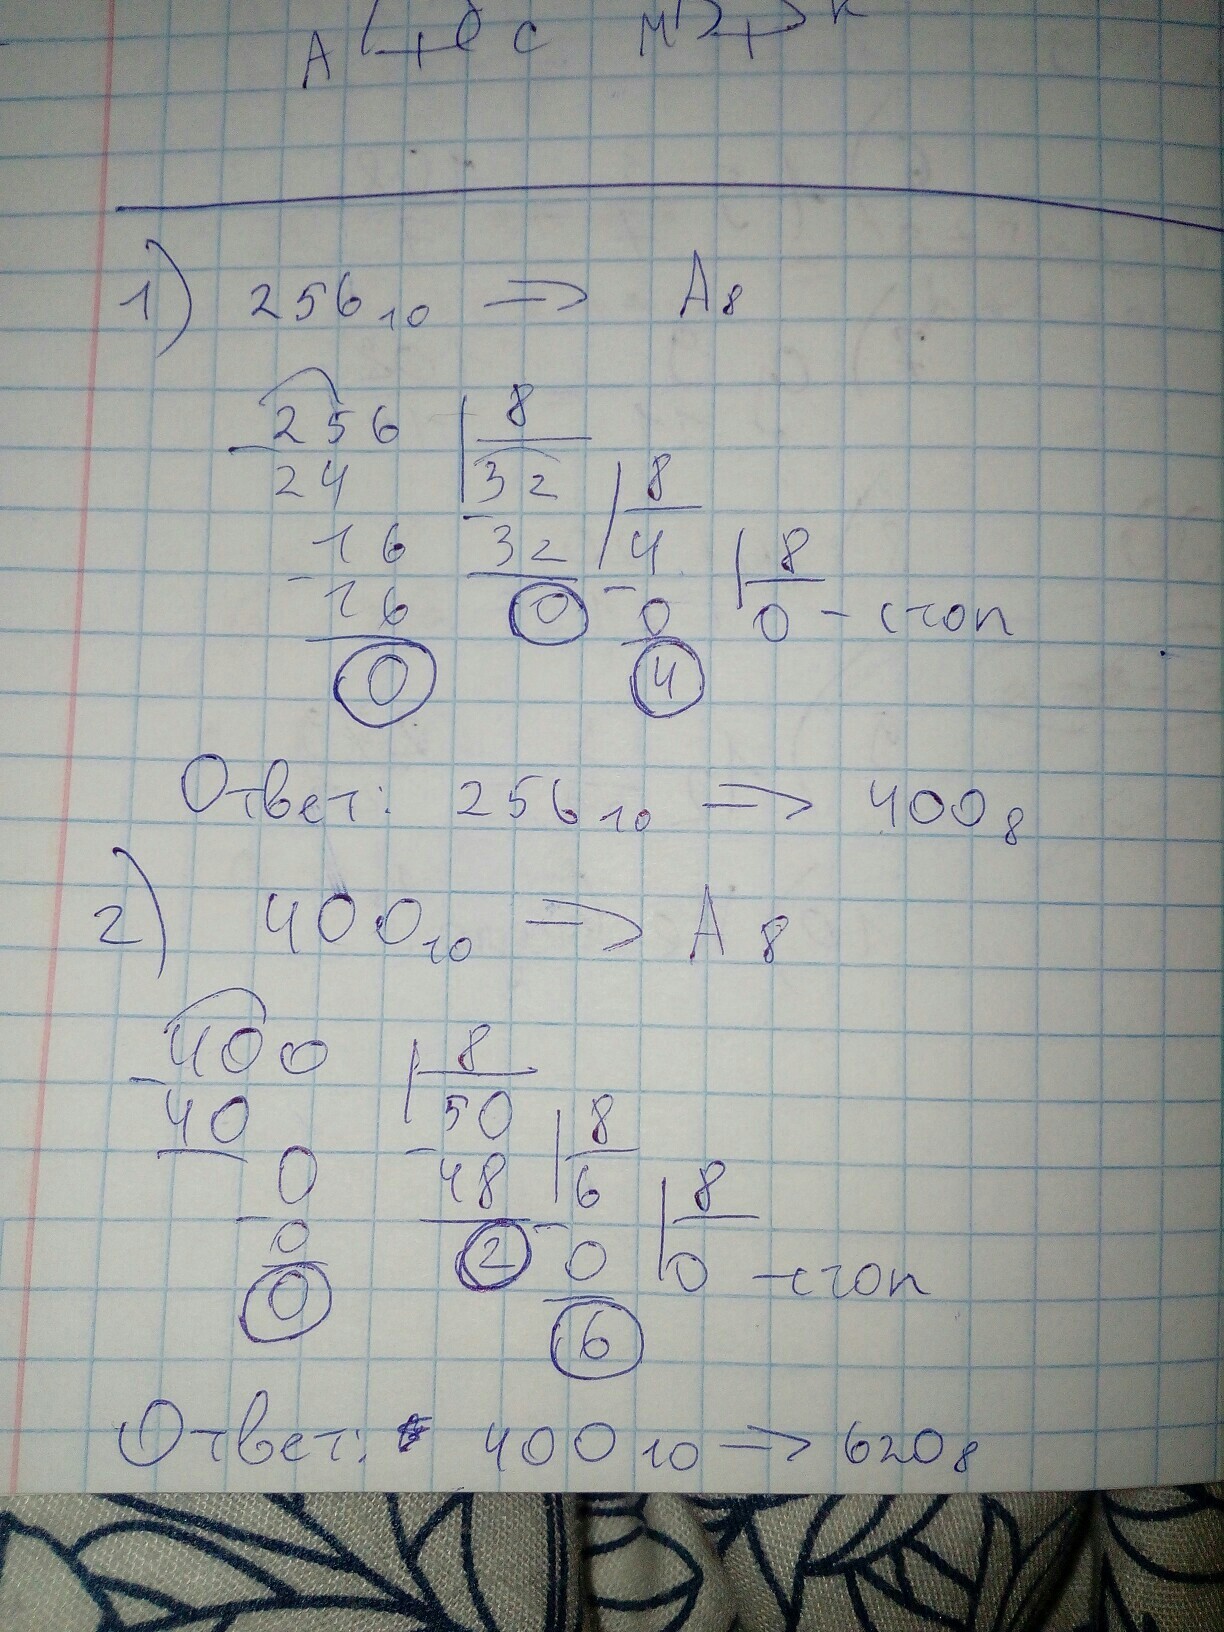 A + C M + K
1) 256₁₀ => A₈
256 | 8
24 32 | 8
16 32 4 | 8
16 0 0 0 - стоп
0 4
Ответ: 256₁₀ => 400₈
2) 400₁₀ => A₈
400 | 8
40 50 | 8
0 48 6 | 8
0 2 0 0 - стоп
0 6
Ответ: 400₁₀ -> 620₈